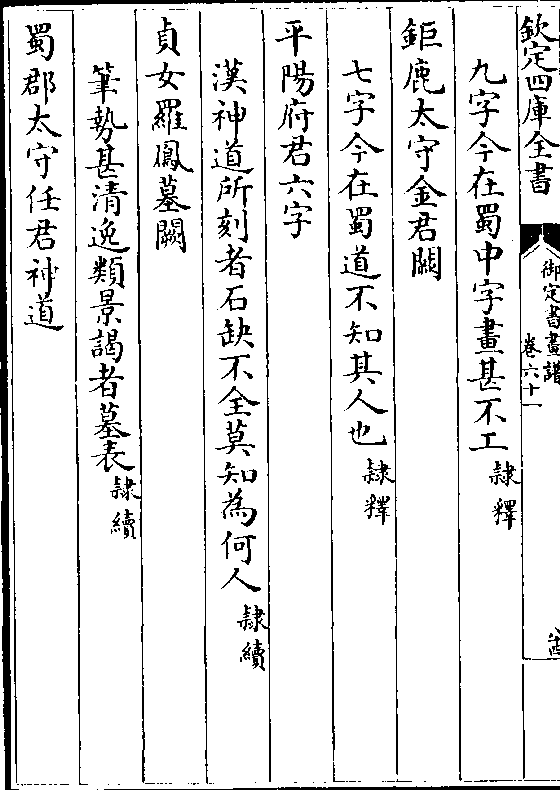 欽定四庫全書
御定書畫譜
卷六十一
九字今在蜀中字畫甚不工隸釋
鉅鹿太守金君闕
七字今在蜀道不知其人也隸釋
平陽府君六字
漢神道所刻者石缺不全莫知為何人隸續
貞女羅鳳墓闕
筆勢甚清逸類景謁者墓表隸續
蜀郡太守任君神道